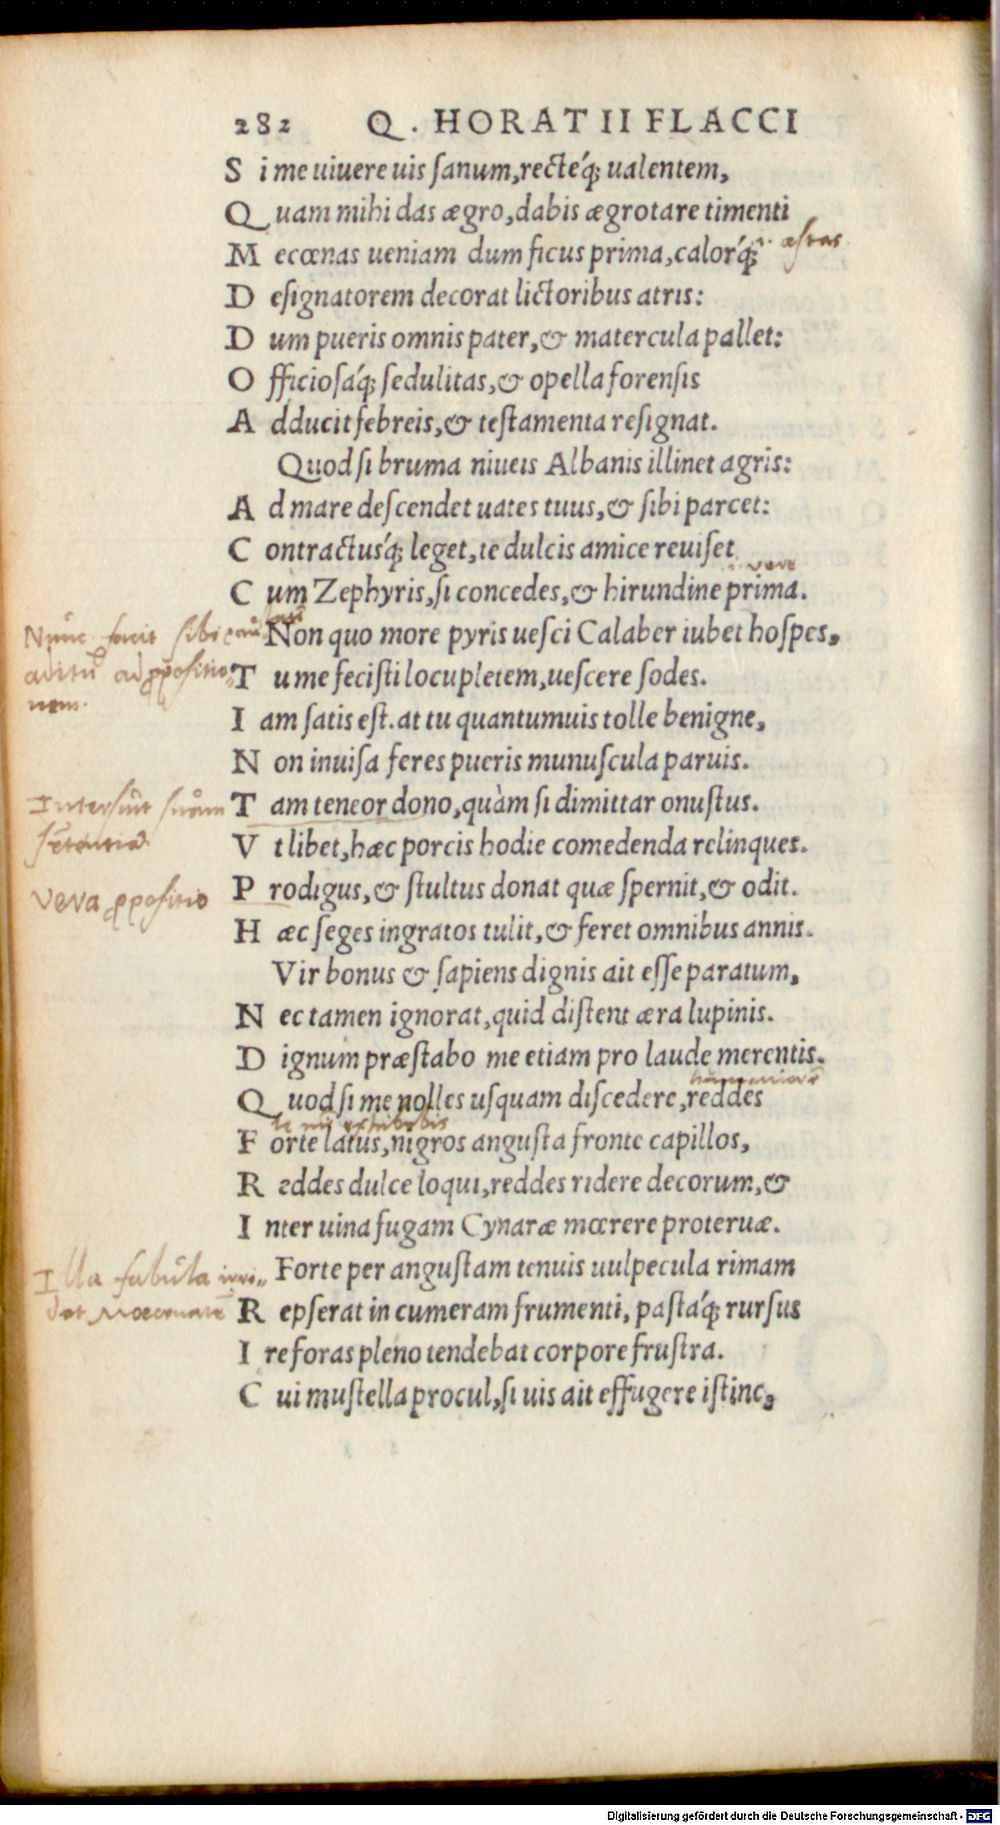 282 Q. HORATII FLACCI
S i me uiuere uis ſanum, recteq́; ualentem,
Q uam mihi das ægro, dabis ægrotare timenti
æſtas
M ecœnas ueniam dum ficus prima, calorq́;
D eſignatorem decorat lictoribus atris:
D um pueris omnis pater, & matercula pallet:
O fficioſaq́; ſedulitas, & opella forenſis
A dducit febreis, & teſtamenta reſignat.
Quod ſi bruma niueis Albanis illinet agris:
A d mare deſcendet uates tuus, & ſibi parcet:
C ontractusq́; leget, te dulcis amice reuiſet
i. vere
C um Zephyris, ſi concedes, & hirundine prima.
Nunc facit ſibi
Non quo more pyris ueſci Calaber iubet hoſpes,
aditū ad ꝓpoſitio-
T u me feciſti locupletem, ueſcere ſodes.
nem.
I am ſatis eſt. at tu quantumuis tolle benigne,
N on inuiſa feres pueris munuſcula paruis.
T am teneor dono, quàm ſi dimittar onuſtus.
V t libet, hæc porcis hodie comedenda relinques.
vera ꝓpoſitio
P rodigus, & ſtultus donat quæ ſpernit, & odit.
H æc ſeges ingratos tulit, & feret omnibus annis.
Vir bonus & ſapiens dignis ait eſſe paratum,
N ec tamen ignorat, quid diſtent æra lupinis.
D ignum præſtabo me etiam pro laude merentis.
Q uod ſi me nolles uſquam diſcedere, reddes
F orte latus, nigros anguſta fronte capillos,
R eddes dulce loqui, reddes ridere decorum, &
I nter uina fugam Cynaræ mœrere proteruæ.
Illa fabula irri-
Forte per anguſtam tenuis uulpecula rimam
det Mœcenatē
R epſerat in cumeram frumenti, paſtaq́; rurſus
I re foras pleno tendebat corpore fruſtra.
C ui muſtella procul, ſi uis ait effugere iſtinc,
Digitalisierung gefördert durch die Deutsche Forschungsgemeinschaft - DFG